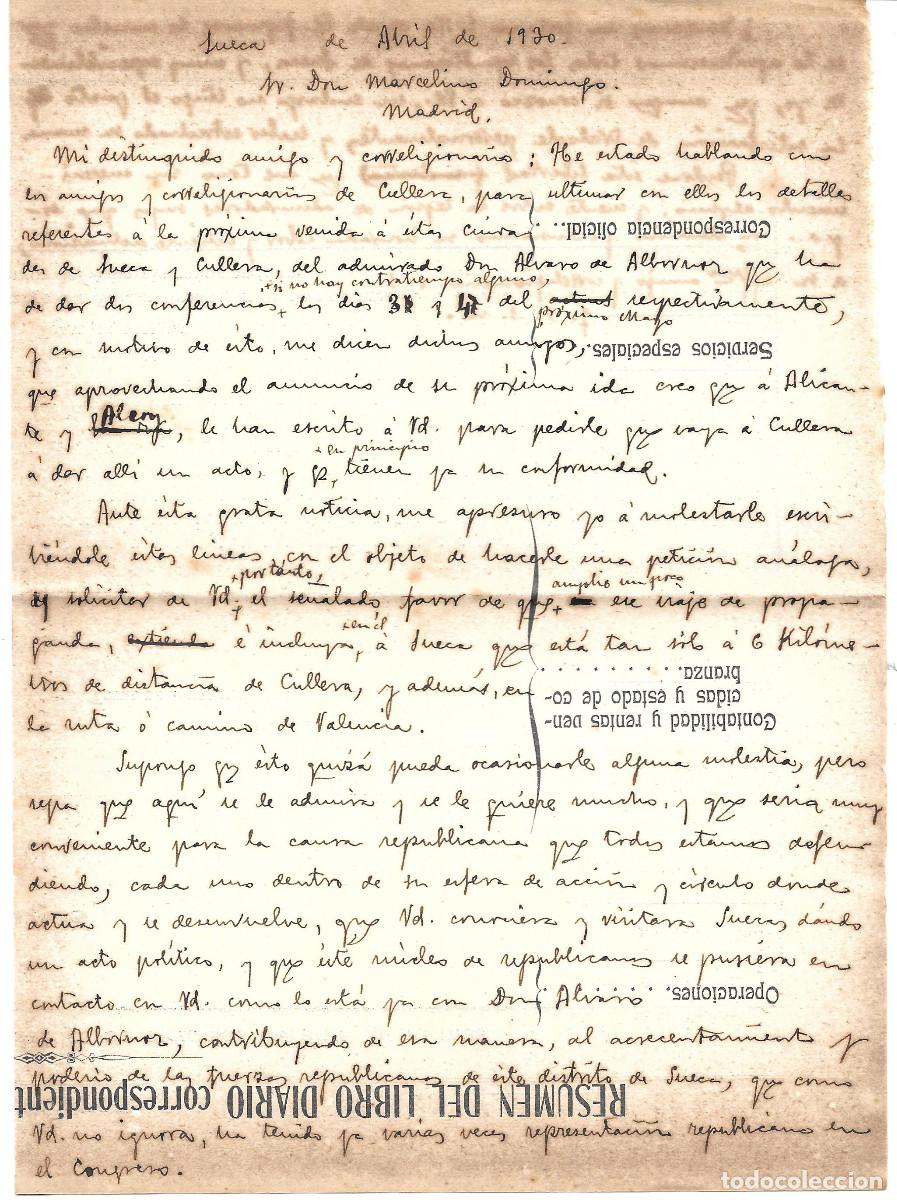 Sueca de Abril de 1930.
Sr. Don Marcelino Domingo.
Madrid.
Mi distinguido amigo y correligionario: He estado hablando con
los amigos y correligionarios de Cullera, para ultimar con ellos los detalles
referentes á la próxima venida á éstas ciuda
Correspondencia oficial..
des de Sueca y Cullera, del admirado Don Alvaro de Albornoz que ha
+ si no hay contratiempo alguno,
de dar dos conferencias + los dias 3 y 4 del actual respectivamente,
próximo Mayo
y con motivo de ésto, me dicen dichos amigos,
Servicios especiales.
que aprovechando el anuncio de su próxima ida creo que á Alican-
te y Alcoy, le han escrito á Vd. para pedirle que vaya á Cullera
+ en principio
á dar allí un acto, y que + tienen ya su conformidad.
Ante ésta grata noticia, me apresuro yo á molestarle escri-
biéndole éstas lineas con el objeto de hacerle una petición análoga,
+ por tanto, amplie un poco
y solicitar de Vd + el señalado favor de que + ese viaje de propa-
+ en él
ganda, extienda é incluya, á Sueca que está tan sólo á 6 Kilóme-
tros de distancia de Cullera, y además, en
la ruta ó camino de Valencia.
Contabilidad y rentas ven-
cidas y estado de co-
branza.
Supongo que ésto quizá pueda ocasionarle alguna molestia, pero
sepa que aquí se le admira y se le quiere mucho, y que seria muy
conveniente para la causa republicana que todos estamos defen
diendo, cada uno dentro de su esfera de acción y círculo donde
actua y se desenvuelve, que Vd. conociera y visitara Sueca, dándo
un acto político, y que éste núcleo de republicanos se pusiera en
contacto con Vd. como lo está ya con Don Alvaro
Operaciones.
de Albornoz, contribuyendo de esa manera, al acrecentamiento y
poderio de las fuerzas republicanas de éste distrito de Sueca, que como
RESUMEN DEL LIBRO DIARIO correspondient
Vd. no ignora, ha tenido ya varias veces representación republicana en
el Congreso.
todocoleccion